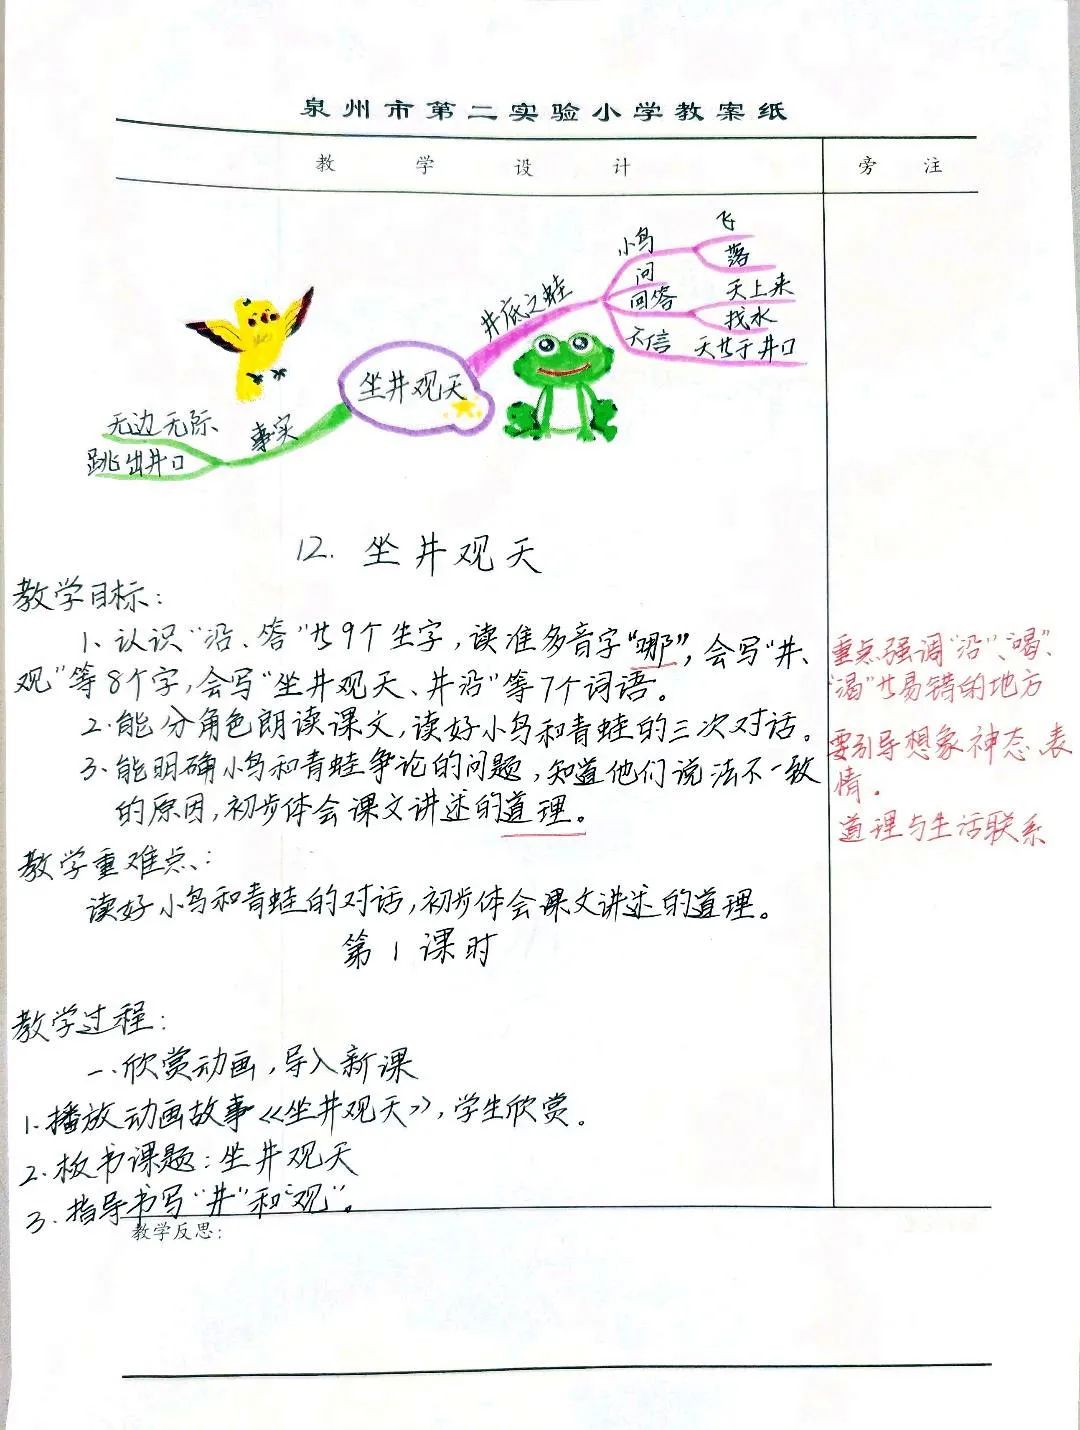 泉州市第二实验小学教案纸
教 学 设 计
旁 注
坐井观天
井底之蛙
小鸟
飞
落
问
回答
天上来
找水
大信
天共于井口
事实
无边无际
跳出井口
12. 坐井观天
教学目标:
1、认识“沿、答”共9个生字,读准多音字“哪”,会写“井、
观”等8个字,会写“坐井观天、井沿”等7个词语。
2.能分角色朗读课文,读好小鸟和青蛙的三次对话。
3.能明确小鸟和青蛙争论的问题,知道他们说法不一致
的原因,初步体会课文讲述的道理。
教学重难点:
读好小鸟和青蛙的对话,初步体会课文讲述的道理。
第1课时
教学过程:
一、欣赏动画,导入新课
1.播放动画故事《坐井观天》,学生欣赏。
2.板书课题:坐井观天
3.指导书写“井”和“观”。
重点强调“沿”、“喝”、
“渴”共易错的地方
要引导想象神态、表
情.
道理与生活联系
教学反思: